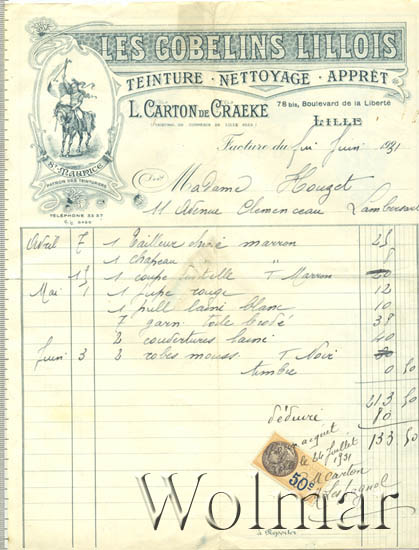 LES GOBELINS LILLOIS
TEINTURE · NETTOYAGE · APPRÊT
L. CARTON DE CRAEKE
78 bis, Boulevard de la Liberté
LILLE
St MAURICE
PATRON DES TEINTURIERS
TÉLÉPHONE 33-37
Facture du fin Juin 1931
Doit
Madame Houzet
11 Avenue Clemenceau Lambersart
Avril 7 1 Tailleur chiné marron 25
1 chapeau " 8
1 coupe dentelle T Marron 20
Mai 1 1 jupe rouge 12
1 pull laine blanc 10
7 garn. toile brodé 38
2 couvertures laine 40
Juin 3 2 robes mouss. T Noir
timbre 0 50
213 50
déduire 80
133 50
Pour acquit
le 24 Juillet
1931
50c
à Reporter
Wolmar